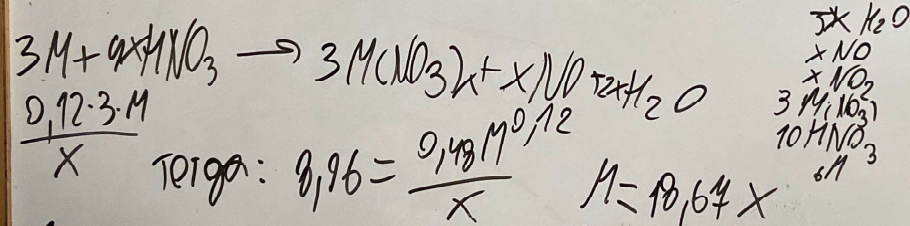 3M + 4xHNO3 → 3M(NO3)x + xNO + 2xH2O
0,12·3·M
x
тогда: 8,96 = 0,48M
x
0,12
M = 18,67 x
5x H2O
x NO
x NO2
3 M(NO3)
10 HNO3
6M